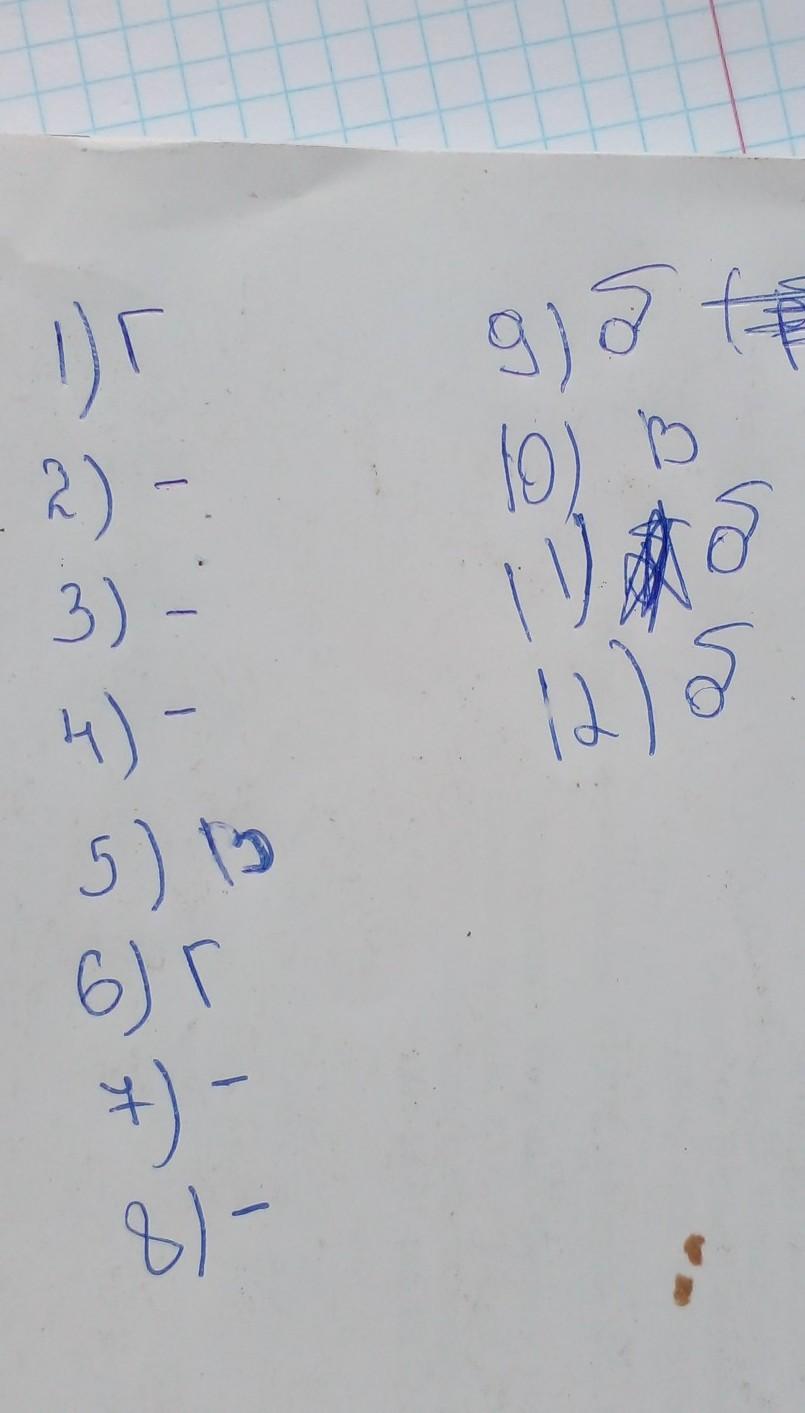 1) г
2) -
3) -
4) -
5) в
6) г
7) -
8) -
9) б
10) в
11) б
12) б